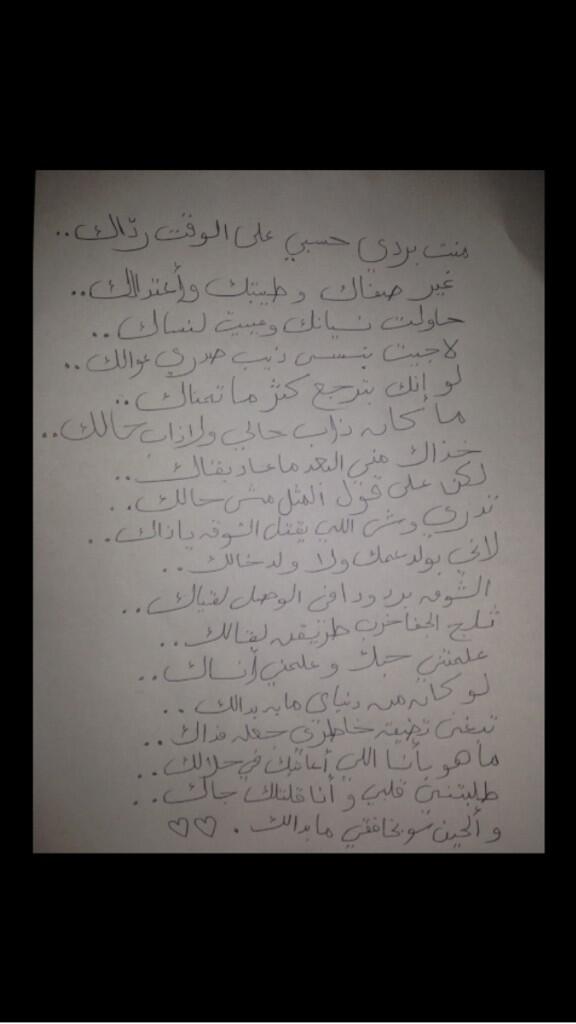 منت بردي حسبي على الوقت ردّاك..
غير صفاك وطيبتك وأعتدالك..
حاولت نسيانك وعييت لنساك..
لاجيت بنسى ذيب صدري عوالك..
لو إنك بترجع كثر ما تمناك..
ما كان ذاب حالي ولاذاب حالك..
خذاك مني البعد ماعاد بفاك..
لكن على قول المثل مش حالك..
تدري وش اللي يقتل الشوق ياذاك..
لاني بولد عمك ولا ولد خالك..
الشوق بردود افى الوصل لقياك..
ثلج الجفا خرب طريق لقالك..
علمتني حبك وعلمني أنساك..
لو كان من دنياي مابه بدالك..
تبغى تضيق خاطري جعله فداك..
ما هو بأنا اللي أعاقبك في حلالك..
طلبتني قلبي وأنا قلتلك جاك..
وألحين سو بخافقي مابدالك. ♡♡